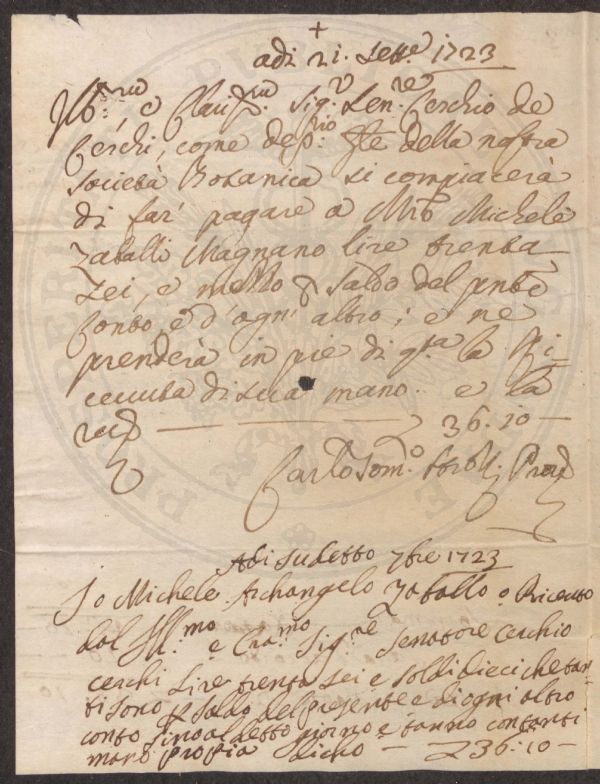 +
adi 21. Sett.e 1723
Ill.mo e Clariss.mo Sig.r Sen.re Cerchio de
Cerchi, come dep.rio g.le della nostra
società Botanica si compiacerà
di far' pagare a Mro Michele
Zaballi Magnano lire trenta
sei, e mezzo p saldo del pnte
Conto, e d'ogn' altro; e ne
prenderà in piè di q.ta la Ri=
ceuuta di sua mano.. e la
36.10 —
Carlo Tom.o
Adi sudetto 7bre 1723
Io Michele Archangelo Zaballo o Riceuto
dal Ill.mo e Cra.mo Sig.re Senatore cerchio
cerchi Lire trenta sei e soldi dieci che tan
ti sono p saldo del presente e di ogni altro
conto sino al detto giorno e tanno contanti
mano propia dicho — £ 36:10 —